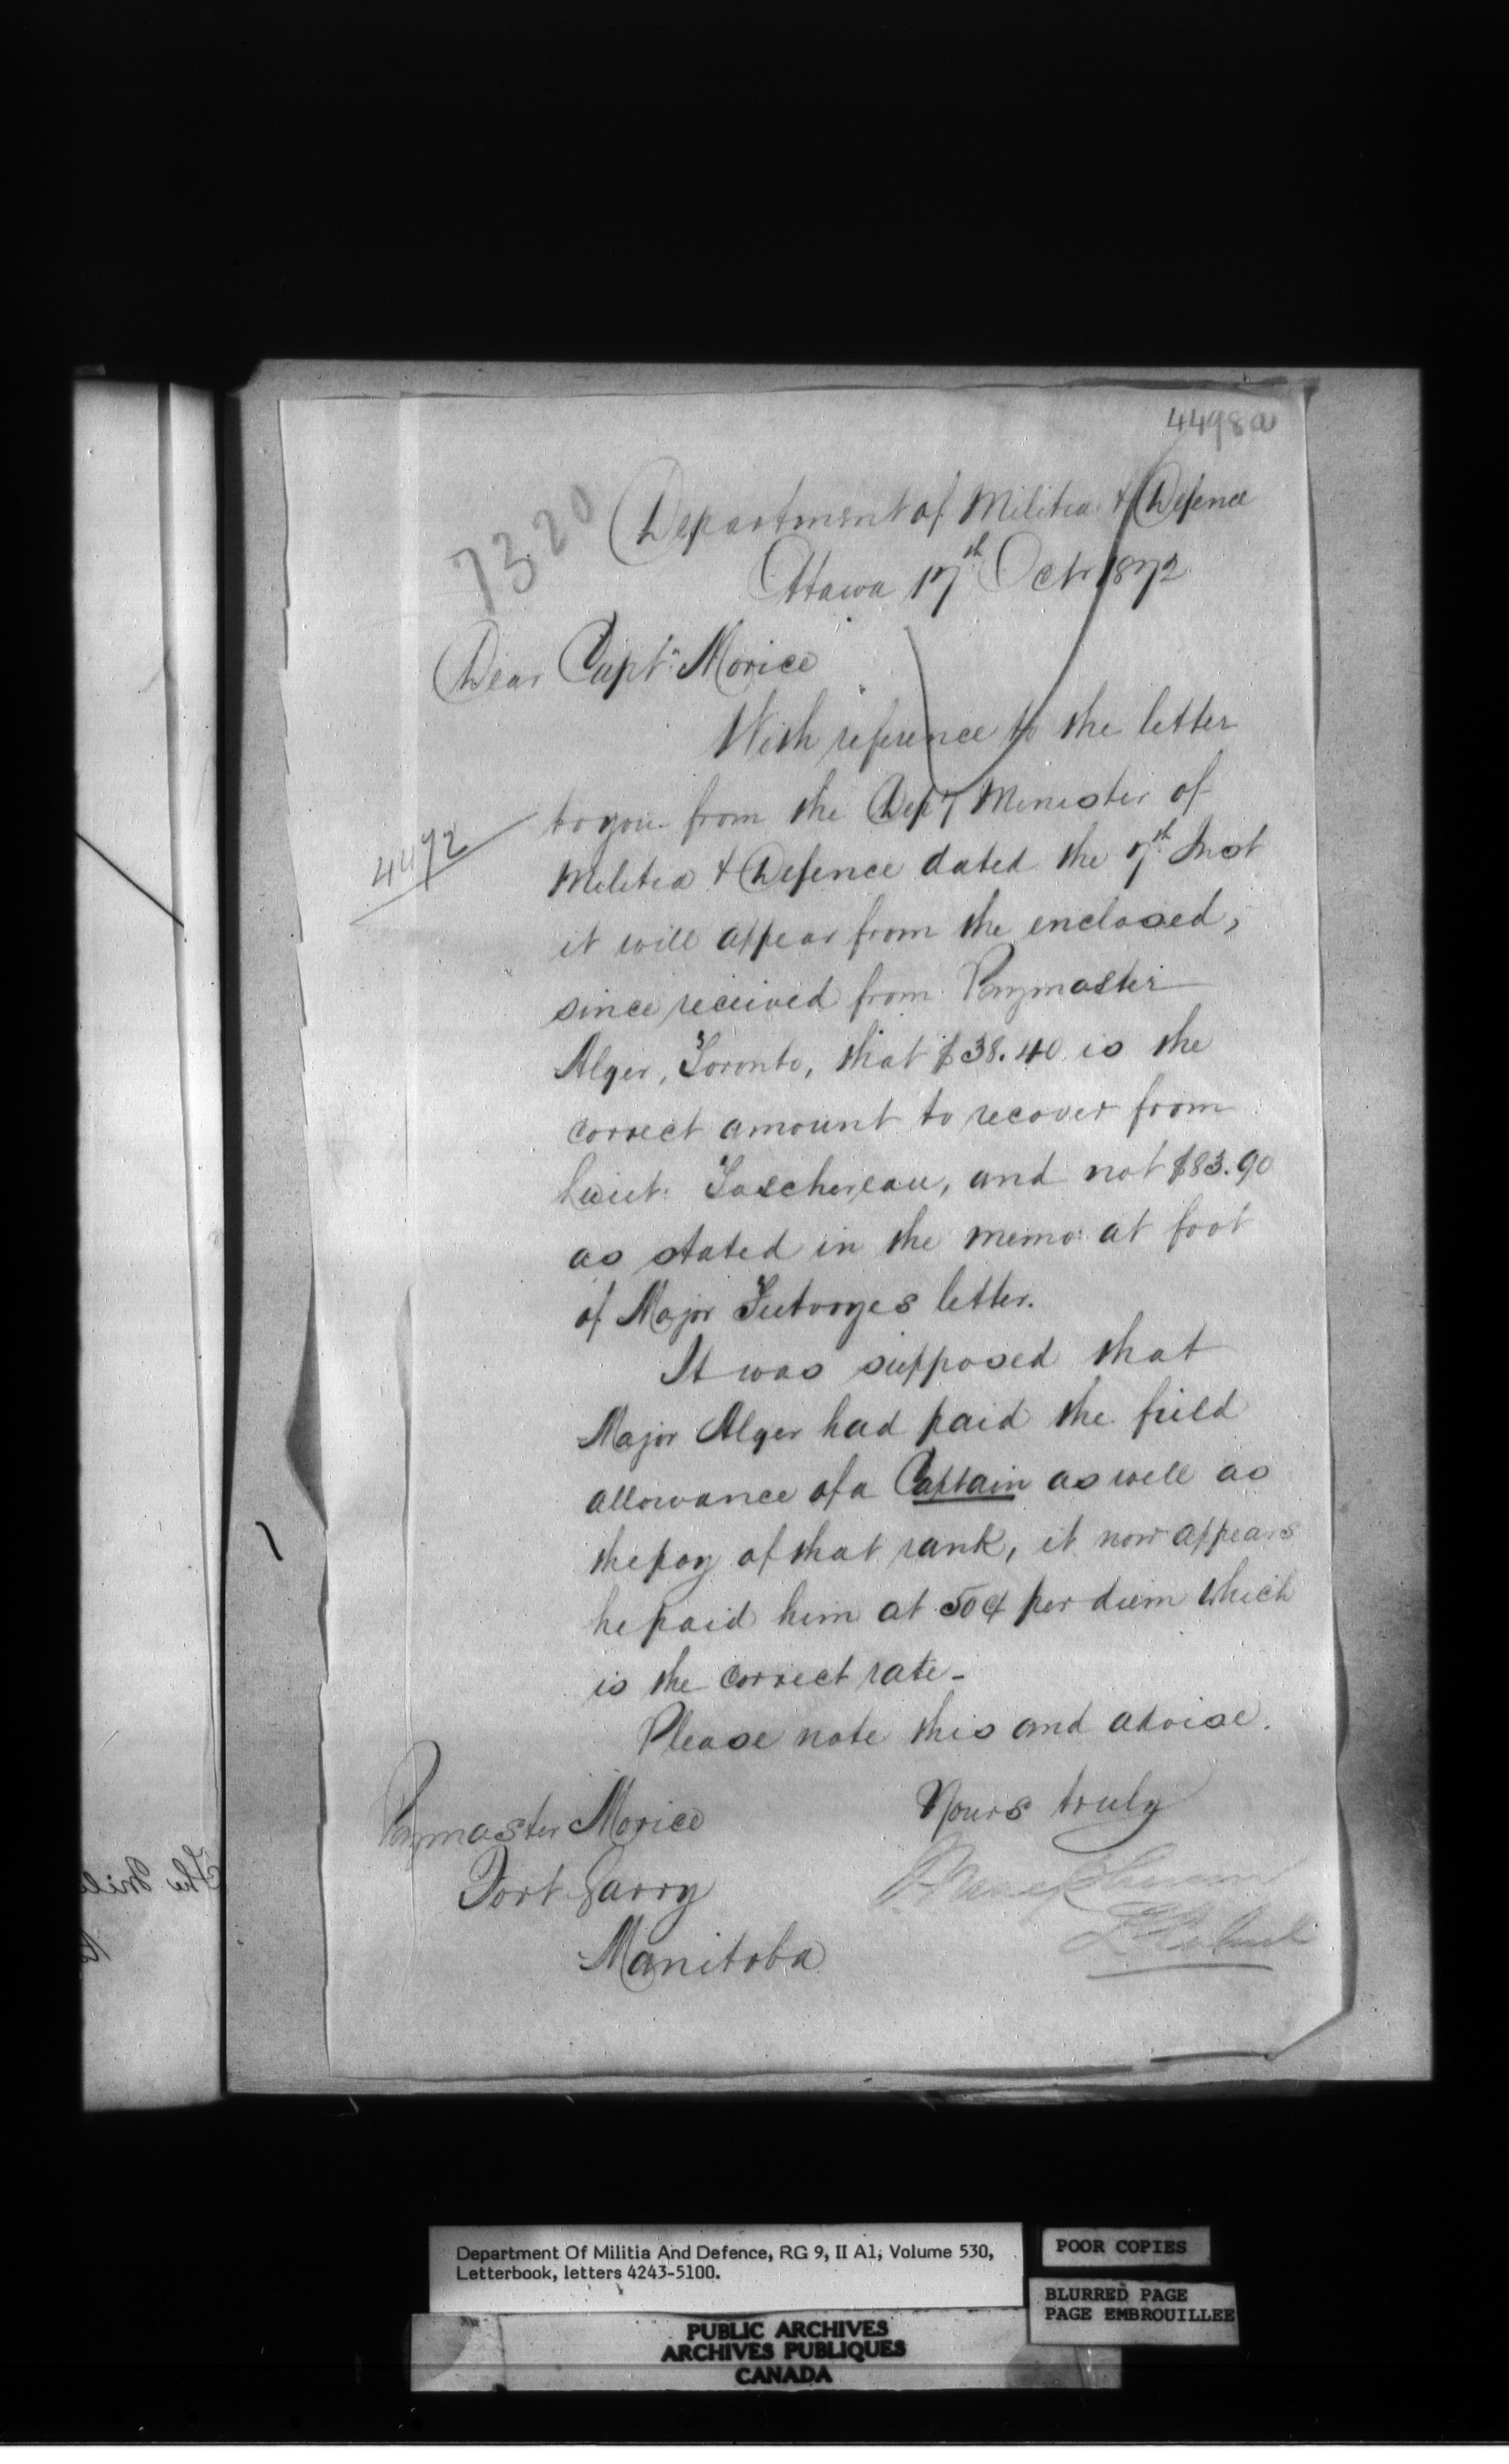 4498a
7320
Department of Militia & Defence
Ottawa 17th Octr 1872
Dear Captn: Morice
With reference to the letter
to you from the Depy Minister of
4472
Militia & Defence dated the 7th Inst
it will appear from the enclosed,
since received from Paymaster
Alger, Toronto, that $38.40 is the
correct amount to recover from
Lieut: Taschereau, and not $83.90
as stated in the memo: at foot
of Major letter.
It was supposed that
Major Alger had paid the field
allowance of a Captain as well as
the pay of that rank, it now appears
he paid him at 50¢ per diem which
is the correct rate -
Please note this and advise.
Yours truly
Paymaster Morice
Fort Garry
Manitoba
Department Of Militia And Defence, RG 9, II A1, Volume 530,
Letterbook, letters 4243-5100.
POOR COPIES
BLURRED PAGE
PAGE EMBROUILLEE
PUBLIC ARCHIVES
ARCHIVES PUBLIQUES
CANADA